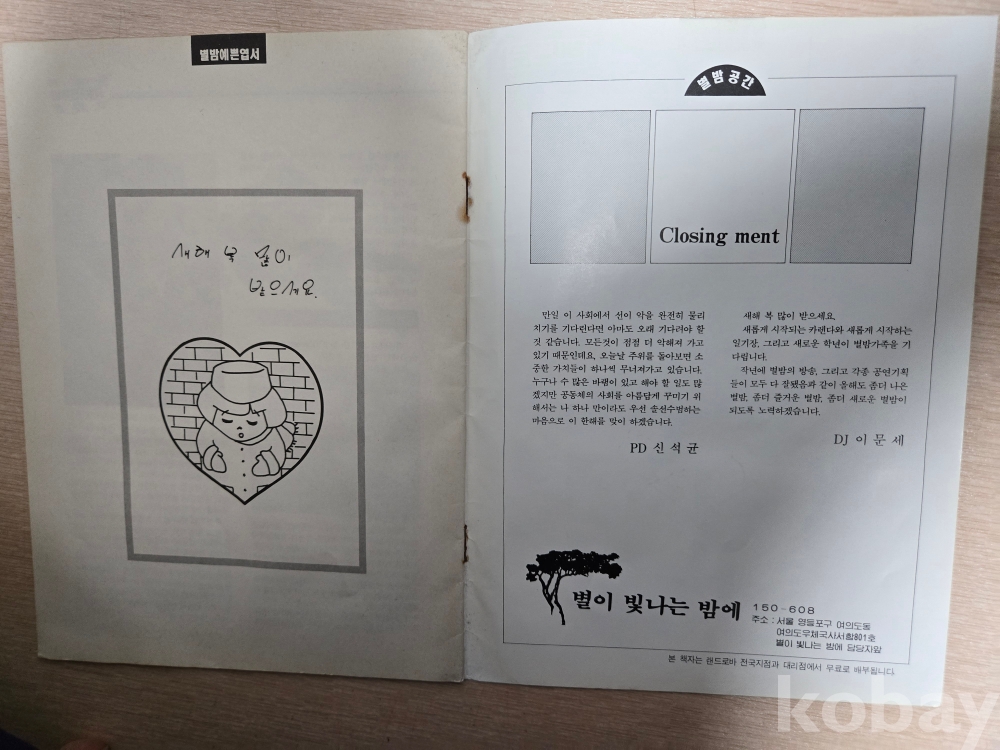 별밤예쁜엽서
새해 복 많이
받으세요.
별밤공간
Closing ment
만일 이 사회에서 선이 악을 완전히 물리
치기를 기다린다면 아마도 오래 기다려야 할
것 같습니다. 모든것이 점점 더 악해져 가고
있기 때문인데요, 오늘날 주위를 돌아보면 소
중한 가치들이 하나씩 무너져가고 있습니다.
누구나 수 많은 바램이 있고 해야 할 일도 많
겠지만 공동체의 사회를 아름답게 꾸미기 위
해서는 나 하나 만이라도 우선 솔선수범하는
마음으로 이 한해를 맞이 하겠습니다.
PD 신석균
새해 복 많이 받으세요.
새롭게 시작되는 카렌다와 새롭게 시작하는
일기장, 그리고 새로운 학년이 별밤가족을 기
다립니다.
작년에 별밤의 방송, 그리고 각종 공연기획
들이 모두 다 잘됐음과 같이 올해도 좀더 나은
별밤, 좀더 즐거운 별밤, 좀더 새로운 별밤이
되도록 노력하겠습니다.
DJ 이문세
별이 빛나는 밤에
150-608
주소 : 서울 영등포구 여의도동
여의도우체국사서함801호
별이 빛나는 밤에 담당자앞
본 책자는 랜드로바 전국지점과 대리점에서 무료로 배부됩니다.
kobay